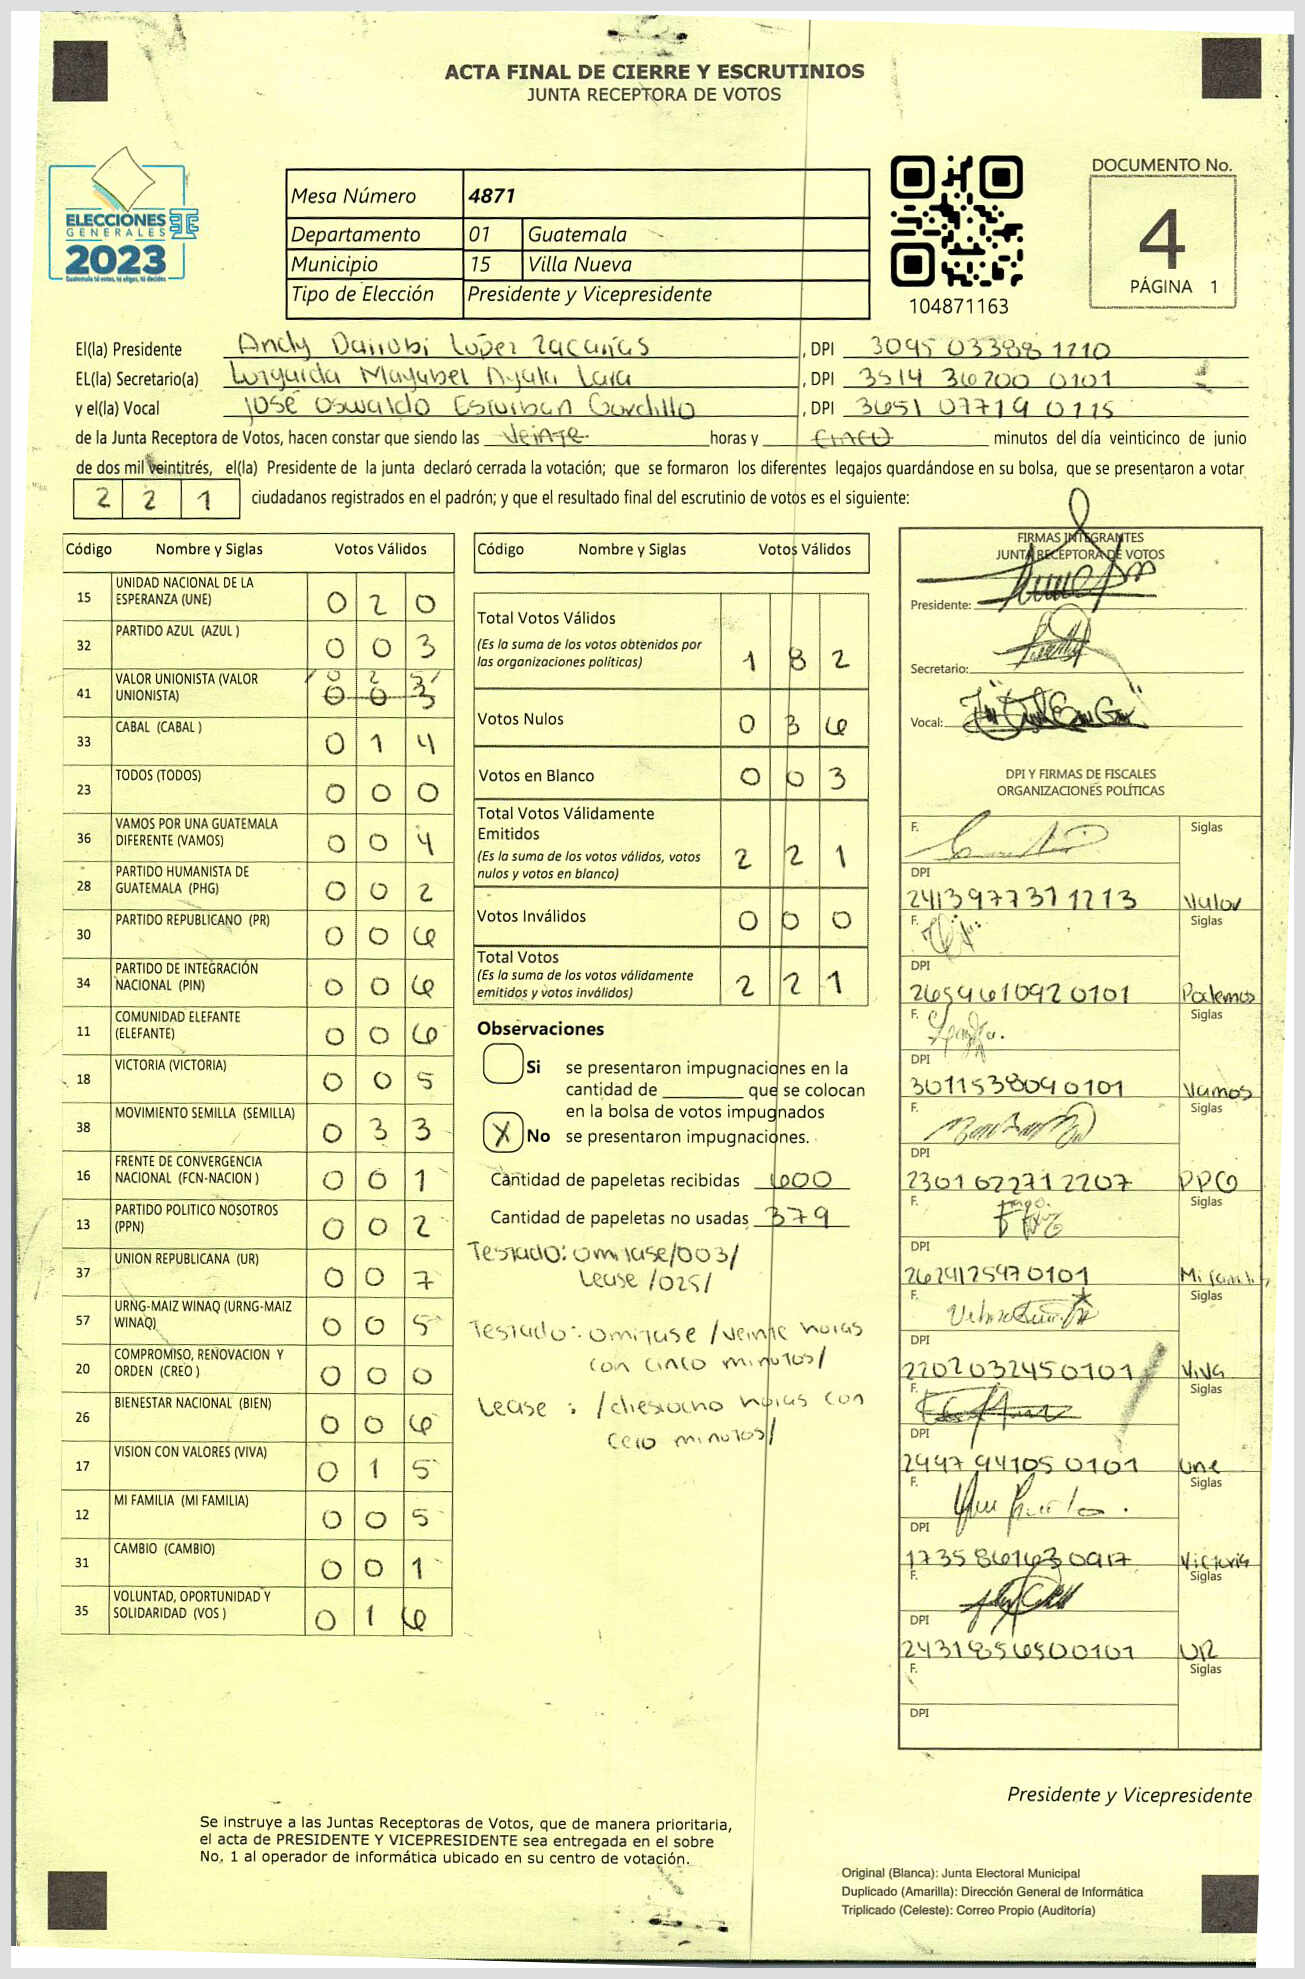 ACTA FINAL DE CIERRE Y ESCRUTINIOS
JUNTA RECEPTORA DE VOTOS
ELECCIONES
GENERALES
2023
Guatemala tú votes, tú eliges, tú decides
Mesa Número 4871
Departamento 01 Guatemala
Municipio 15 Villa Nueva
Tipo de Elección Presidente y Vicepresidente
104871163
DOCUMENTO No.
4
PÁGINA 1
El(la) Presidente Andy Danubi López Zacarías, DPI 3095 03388 1210
EL(la) Secretario(a) Mayubel Ayala Lara, DPI 3514 36200 0101
y el(la) Vocal José Oswaldo Escriban Gordillo, DPI 3651 07719 0115
de la Junta Receptora de Votos, hacen constar que siendo las veinte horas y cinco minutos del día veinticinco de junio
de dos mil veintitrés, el(la) Presidente de la junta declaró cerrada la votación; que se formaron los diferentes legajos quardándose en su bolsa, que se presentaron a votar
2 2 1 ciudadanos registrados en el padrón; y que el resultado final del escrutinio de votos es el siguiente:
Código Nombre y Siglas Votos Válidos
15 UNIDAD NACIONAL DE LA ESPERANZA (UNE) 0 2 0
32 PARTIDO AZUL (AZUL ) 0 0 3
41 VALOR UNIONISTA (VALOR UNIONISTA) / 0 2 5 / 0 0 3
33 CABAL (CABAL ) 0 1 4
23 TODOS (TODOS) 0 0 0
36 VAMOS POR UNA GUATEMALA DIFERENTE (VAMOS) 0 0 4
28 PARTIDO HUMANISTA DE GUATEMALA (PHG) 0 0 2
30 PARTIDO REPUBLICANO (PR) 0 0 6
34 PARTIDO DE INTEGRACIÓN NACIONAL (PIN) 0 0 6
11 COMUNIDAD ELEFANTE (ELEFANTE) 0 0 6
18 VICTORIA (VICTORIA) 0 0 5
38 MOVIMIENTO SEMILLA (SEMILLA) 0 3 3
16 FRENTE DE CONVERGENCIA NACIONAL (FCN-NACION ) 0 0 1
13 PARTIDO POLITICO NOSOTROS (PPN) 0 0 2
37 UNION REPUBLICANA (UR) 0 0 7
57 URNG-MAIZ WINAQ (URNG-MAIZ WINAQ) 0 0 5
20 COMPROMISO, RENOVACION Y ORDEN (CREO ) 0 0 0
26 BIENESTAR NACIONAL (BIEN) 0 0 6
17 VISION CON VALORES (VIVA) 0 1 5
12 MI FAMILIA (MI FAMILIA) 0 0 5
31 CAMBIO (CAMBIO) 0 0 1
35 VOLUNTAD, OPORTUNIDAD Y SOLIDARIDAD (VOS ) 0 1 6
Código Nombre y Siglas Votos Válidos
Total Votos Válidos
(Es la suma de los votos obtenidos por
las organizaciones políticas) 1 8 2
Votos Nulos 0 3 6
Votos en Blanco 0 0 3
Total Votos Válidamente
Emitidos
(Es la suma de los votos válidos, votos
nulos y votos en blanco) 2 2 1
Votos Inválidos 0 0 0
Total Votos
(Es la suma de los votos válidamente
emitidos y votos inválidos) 2 2 1
Observaciones
Si se presentaron impugnaciones en la
cantidad de ________ que se colocan
en la bolsa de votos impugnados
X No se presentaron impugnaciones.
Cantidad de papeletas recibidas 600
Cantidad de papeletas no usadas 379
Testado: omitase/003/
Lease /025/
Testado: omitase /veinte horas
con cinco minutos/
Lease : /diesiocho horas con
cero minutos/
FIRMAS INTEGRANTES
JUNTA RECEPTORA DE VOTOS
Presidente:
Secretario:
Vocal:
DPI Y FIRMAS DE FISCALES
ORGANIZACIONES POLÍTICAS
F. Siglas
DPI
2413977311213 Valor
F. Siglas
DPI
2659610920101 Podemos
F. Siglas
DPI
3011538090101 Vamos
F. Siglas
DPI
2301622712207 PPG
F. Siglas
DPI
2629125970101 Mi Famili
F. Siglas
DPI
2202032450101 VIVA
F. Siglas
DPI
2997 94105 0101 une
F. Siglas
DPI
1735861630917 Victoria
F. Siglas
DPI
2431856500101 UR
F. Siglas
DPI
Presidente y Vicepresidente
Se instruye a las Juntas Receptoras de Votos, que de manera prioritaria,
el acta de PRESIDENTE Y VICEPRESIDENTE sea entregada en el sobre
No. 1 al operador de informática ubicado en su centro de votación.
Original (Blanca): Junta Electoral Municipal
Duplicado (Amarilla): Dirección General de Informática
Triplicado (Celeste): Correo Propio (Auditoría)